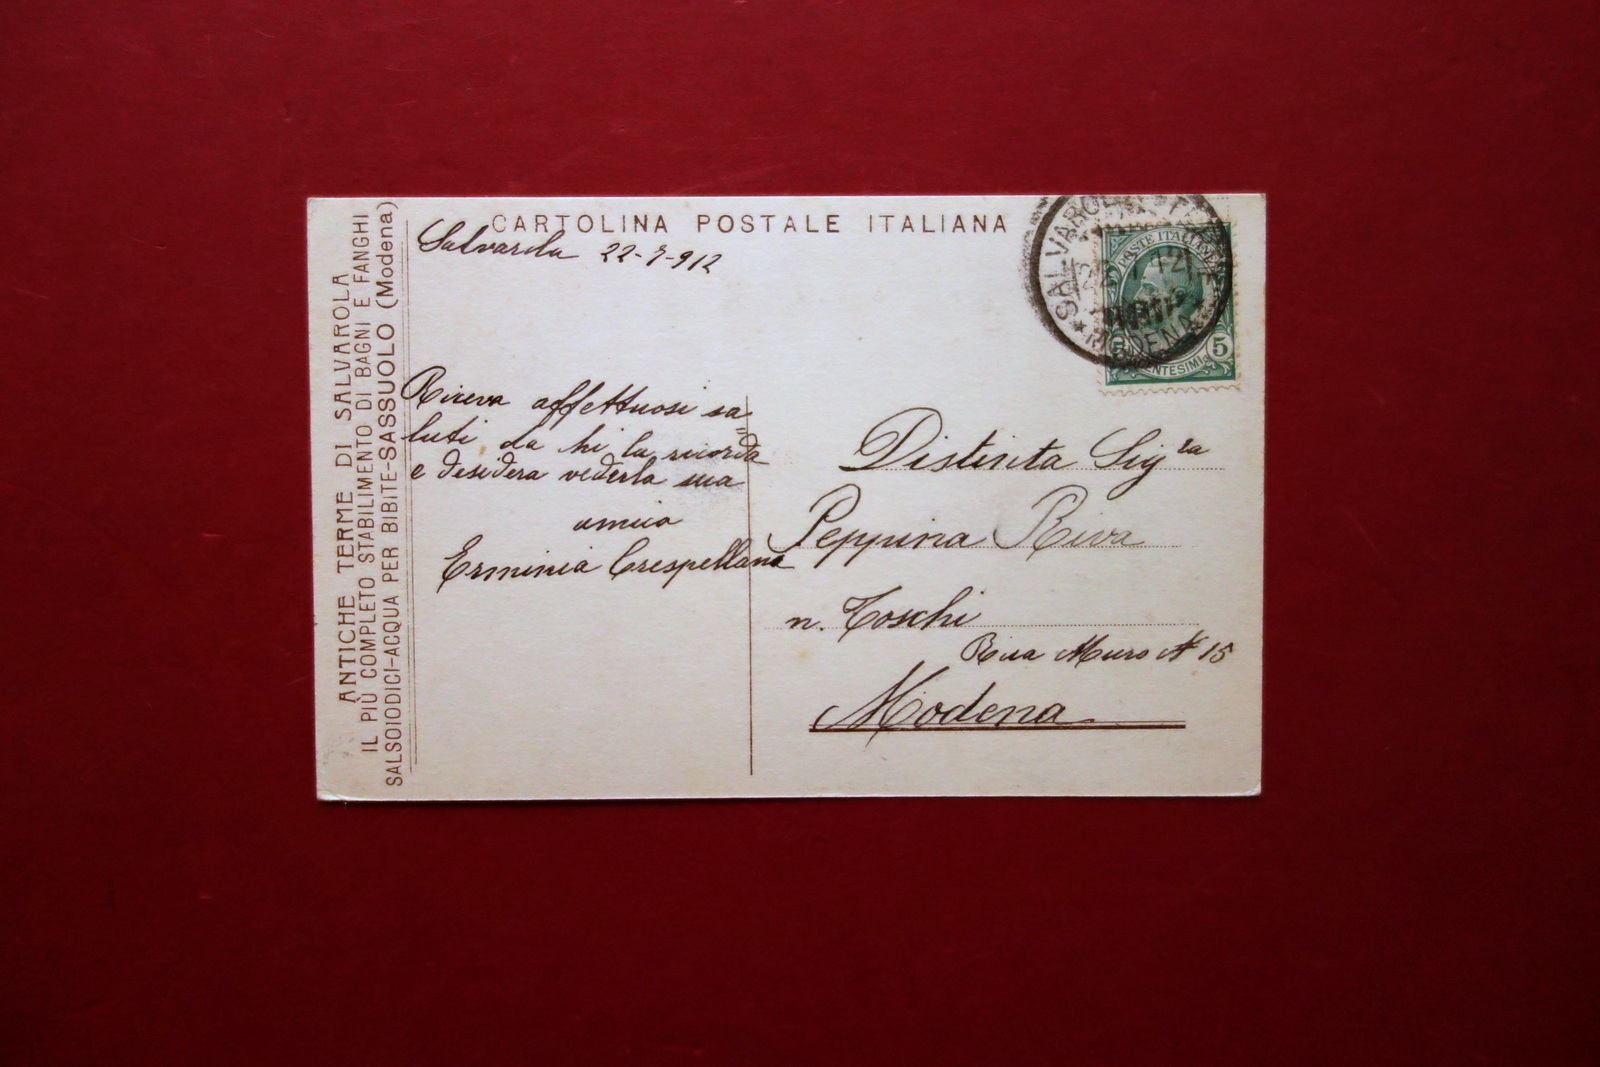 CARTOLINA POSTALE ITALIANA
ANTICHE TERME DI SALVAROLA
IL PIÙ COMPLETO STABILIMENTO DI BAGNI E FANGHI
SALSOIODICI-ACQUA PER BIBITE-SASSUOLO (Modena)
Salvarola 22-7-912
Riceva affettuosi sa=
luti da chi la ricorda
e desidera vederla sua
amica
Erminia Crespellana
SALVAROLA
12
MODENA
POSTE ITALIANE
5 CENTESIMI 5
Distinta Sigra
Peppina Riva
n. Toschi
Rua Muro N 15
Modena